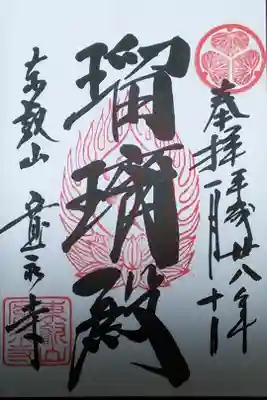 奉拝 平成廿八年
一月十日
瑠璃殿
東叡山 寛永寺